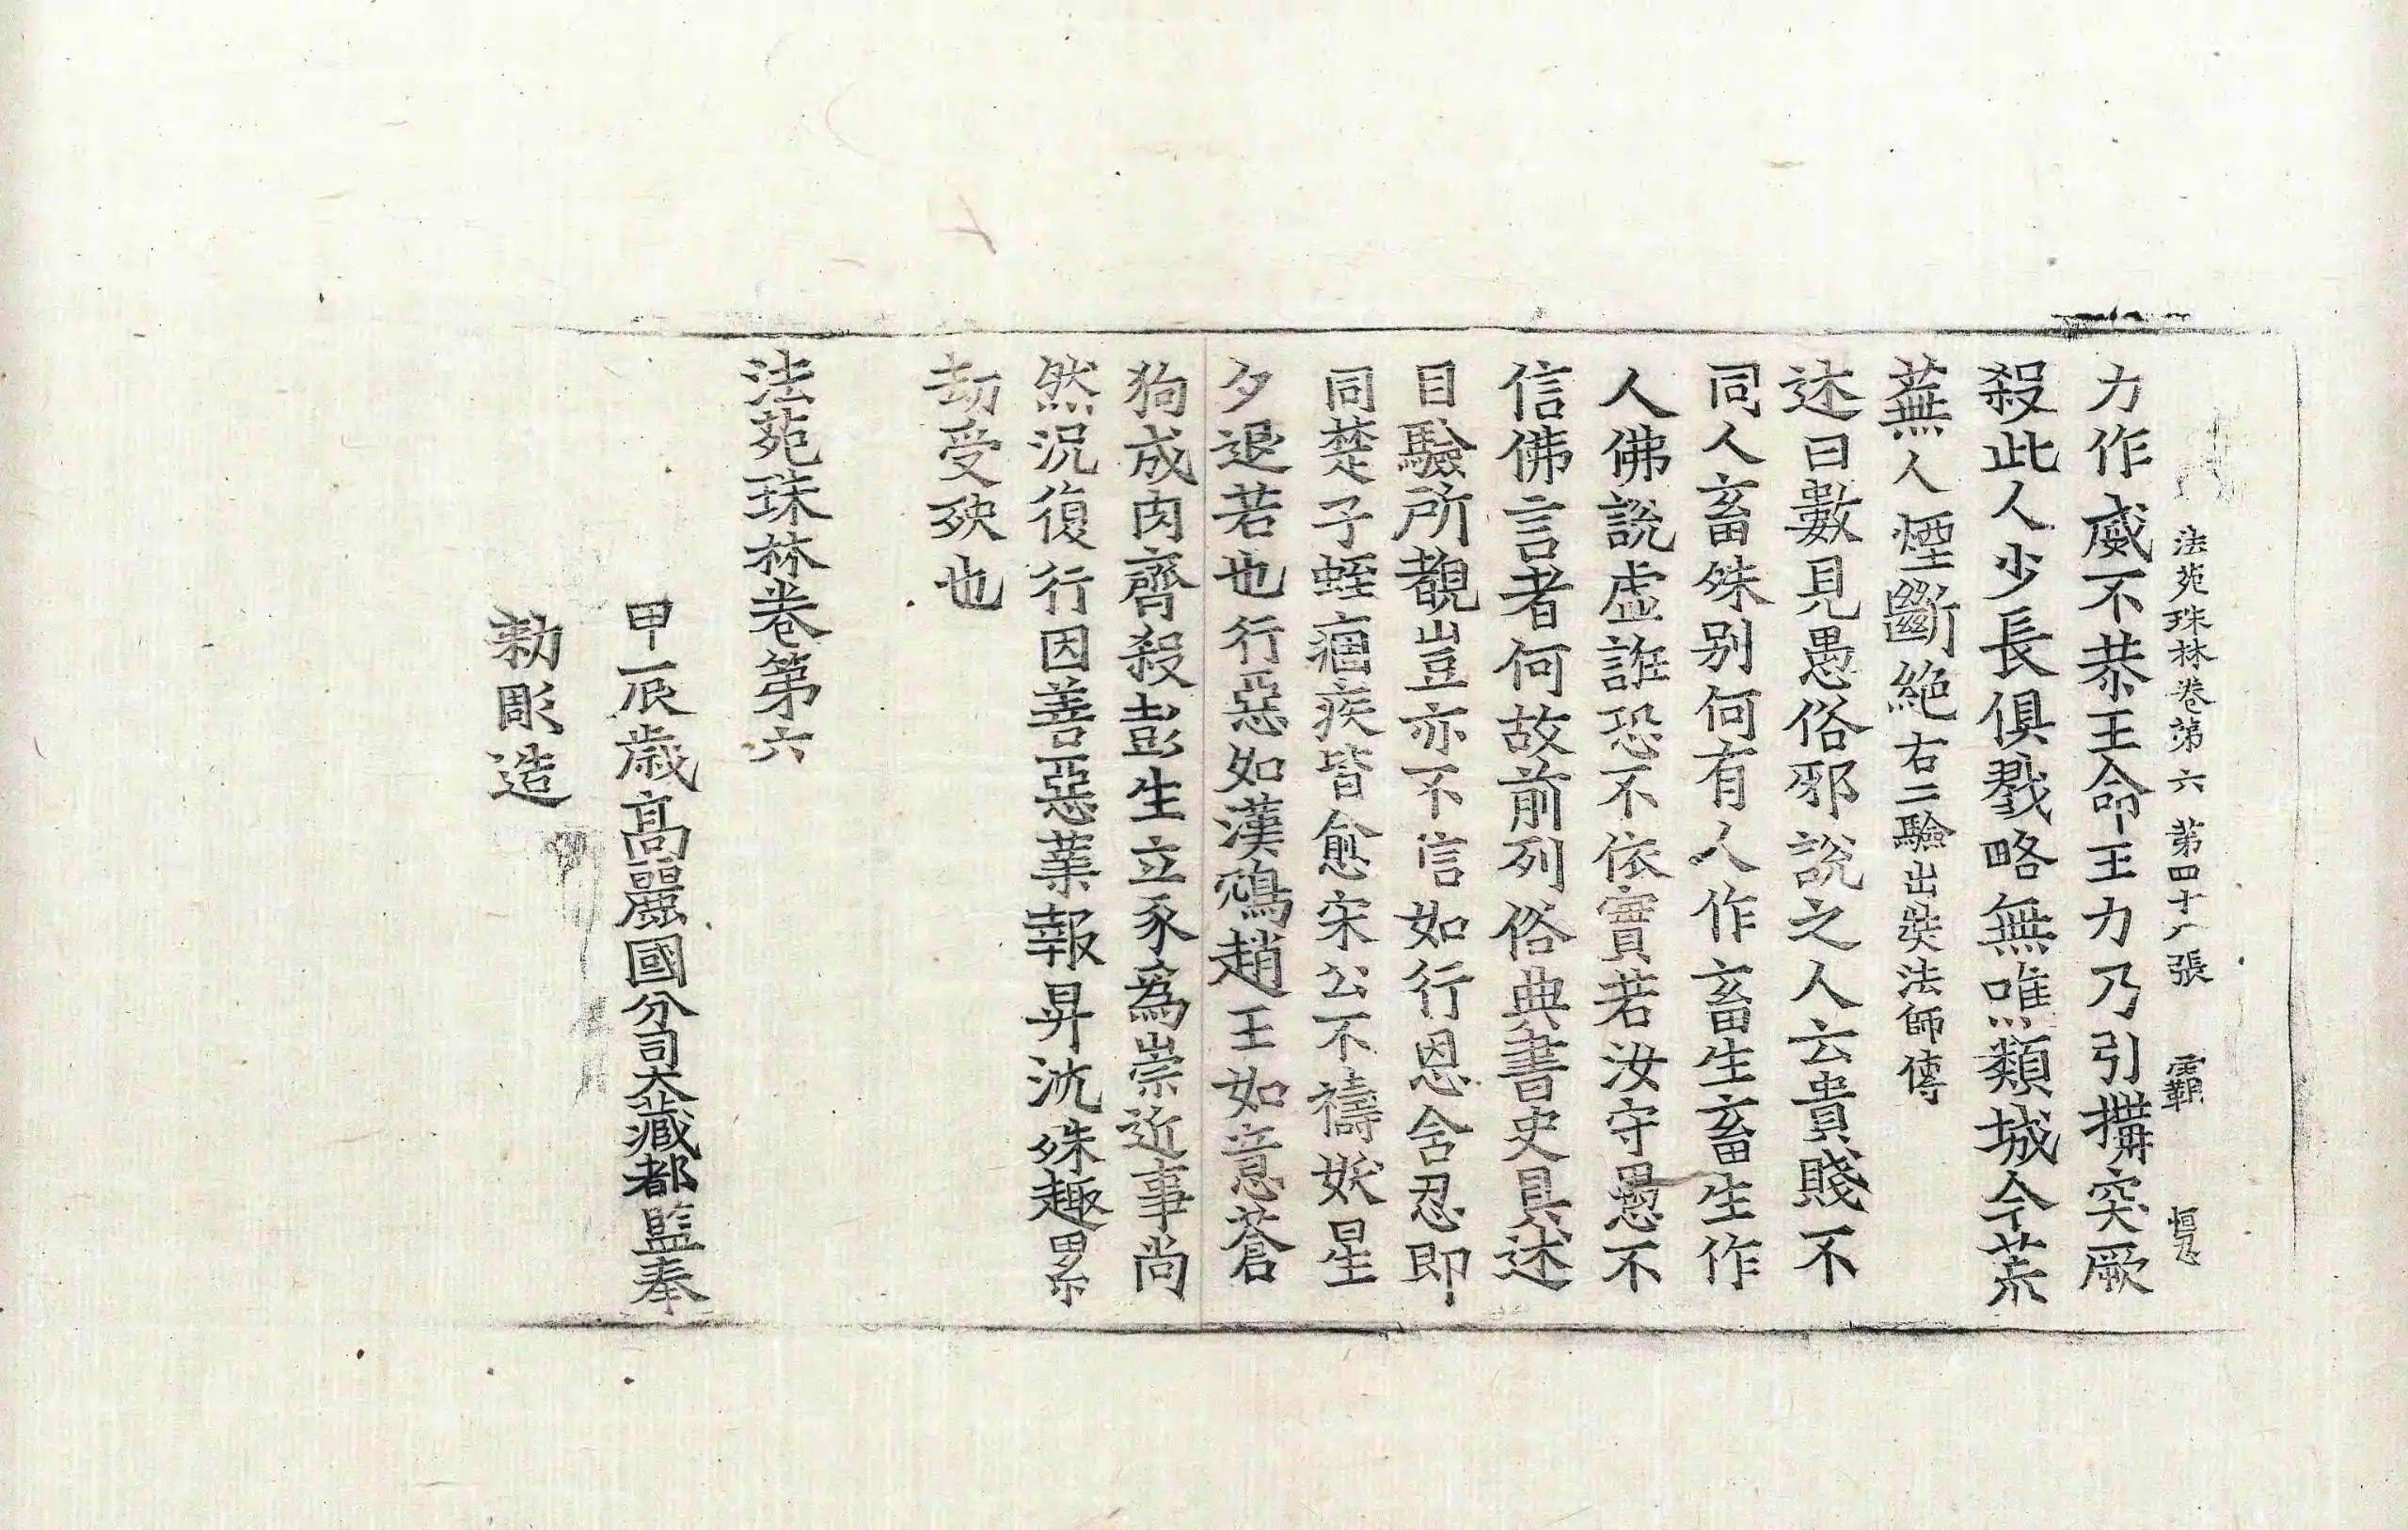 法苑珠林卷第六 第四十八張 霸 恒忍
力作威不恭王命王力乃引搆突厥
殺此人少長俱戮略無唯類城今荒
蕪人煙斷絕右二驗出奘法師傳
述曰數見愚俗邪說之人云貴賤不
同人畜殊别何有人作畜生畜生作
人佛說虛誑恐不依實若汝守愚不
信佛言者何故前列俗典書史具述
目驗所覩豈亦不信如行恩舍忍即
同楚子蛭痼疾皆愈宋公不禱妖星
夕退若也行惡如漢鴆趙王如意蒼
狗成肉齊殺彭生立豕爲祟近事尚
然況復行因善惡業報昇沈殊趣累
劫受殃也
法苑珠林卷第六
甲辰歲高麗國分司大藏都監奉
勑彫造